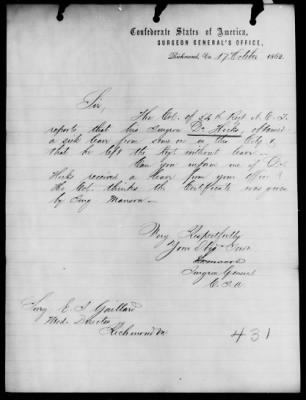 Confederate States of America,
SURGEON GENERAL'S OFFICE,
Richmond, Va. 17 October 1862.
Sir
The Col. of 24th Regt N. C. T.
reports that his Surgeon Dr Hicks obtained
a sick leave from some one in this City &
that he left the Regt without leave —
Can you inform me if Dr
Hicks received a leave from your office?
The Col. thinks the Certificate was given
by Surg Manson.
Very Respectfully
Your Obt Servt
Surgeon General
C. S. A
Surg E. S. Gaillard
Med. Director
Richmond Va
431